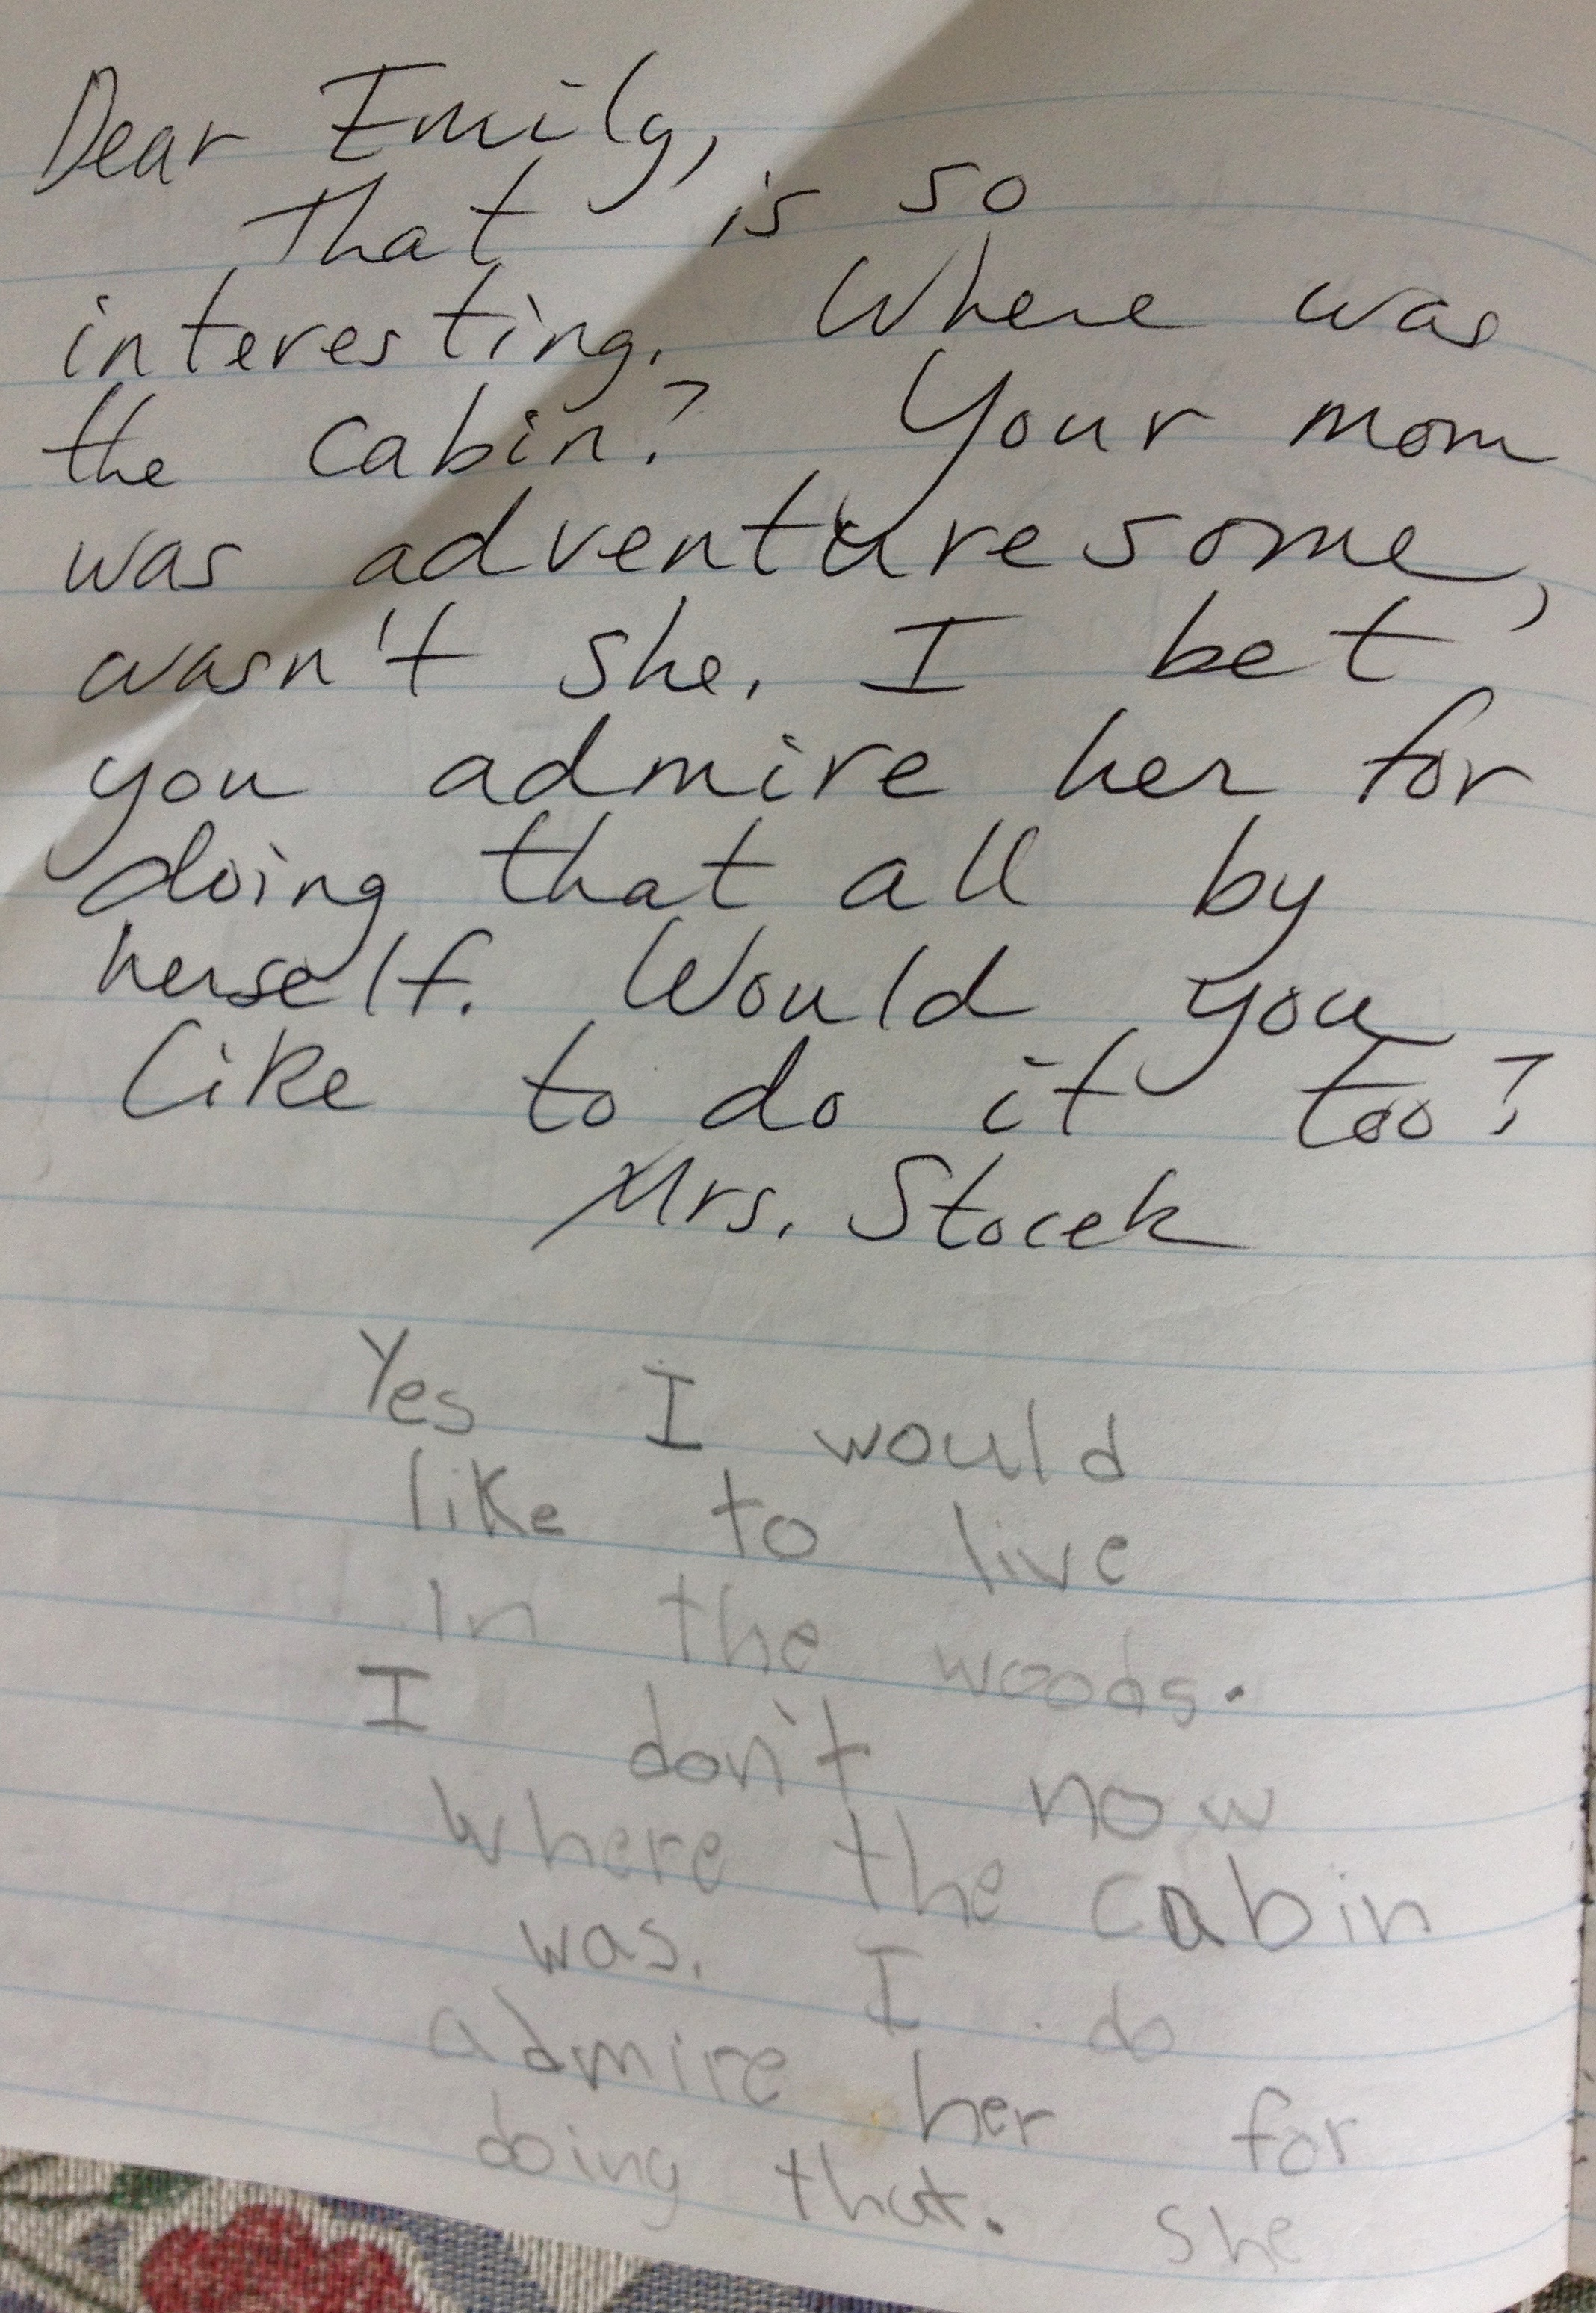 Dear Emily,
That is so
interesting. Where was
the cabin? Your mom
was adventuresome,
wasn't she. I bet
you admire her for
doing that all by
herself. Would you
like to do it too?
Mrs. Stocek
Yes I would
like to live
in the woods.
I don't now
where the cabin
was. I do
admire her for
doing that. She